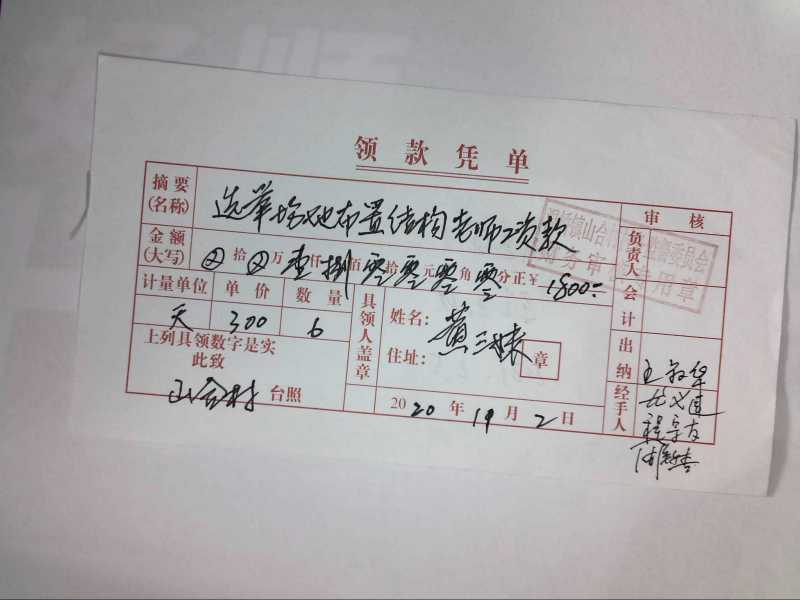 领款凭单
摘要(名称) 选举场地布置结构老师工资款 审核
金额(大写) ⊗拾⊗万壹仟捌佰零拾零元零角零分正¥1800.- 负责人
计量单位 单价 数量 具领人盖章 姓名: 黄三妹 会计
天 300 6 住址: 章
上列具领数字是实 出纳
此致 王
山合村 台照 2020年19月2日 经手人
财务审 专用章